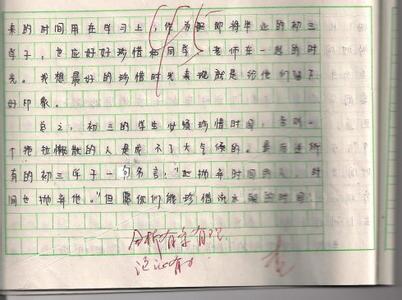 来的时间用在学习上，作为即将毕业的初三
学子，也应好好珍惜和同学、老师在一起的时
光。我想最好的珍惜时光表现就是给他们留下
好印象。
总之，初三的学生必须珍惜时间，贪图一
个拖拉懒散的人是成不了大气候的。最后送所
有的初三学子一句名言：“抛弃时间的人，时
间也抛弃他。”但愿你们能珍惜流水般的时间。
分析有条有理
论证有力